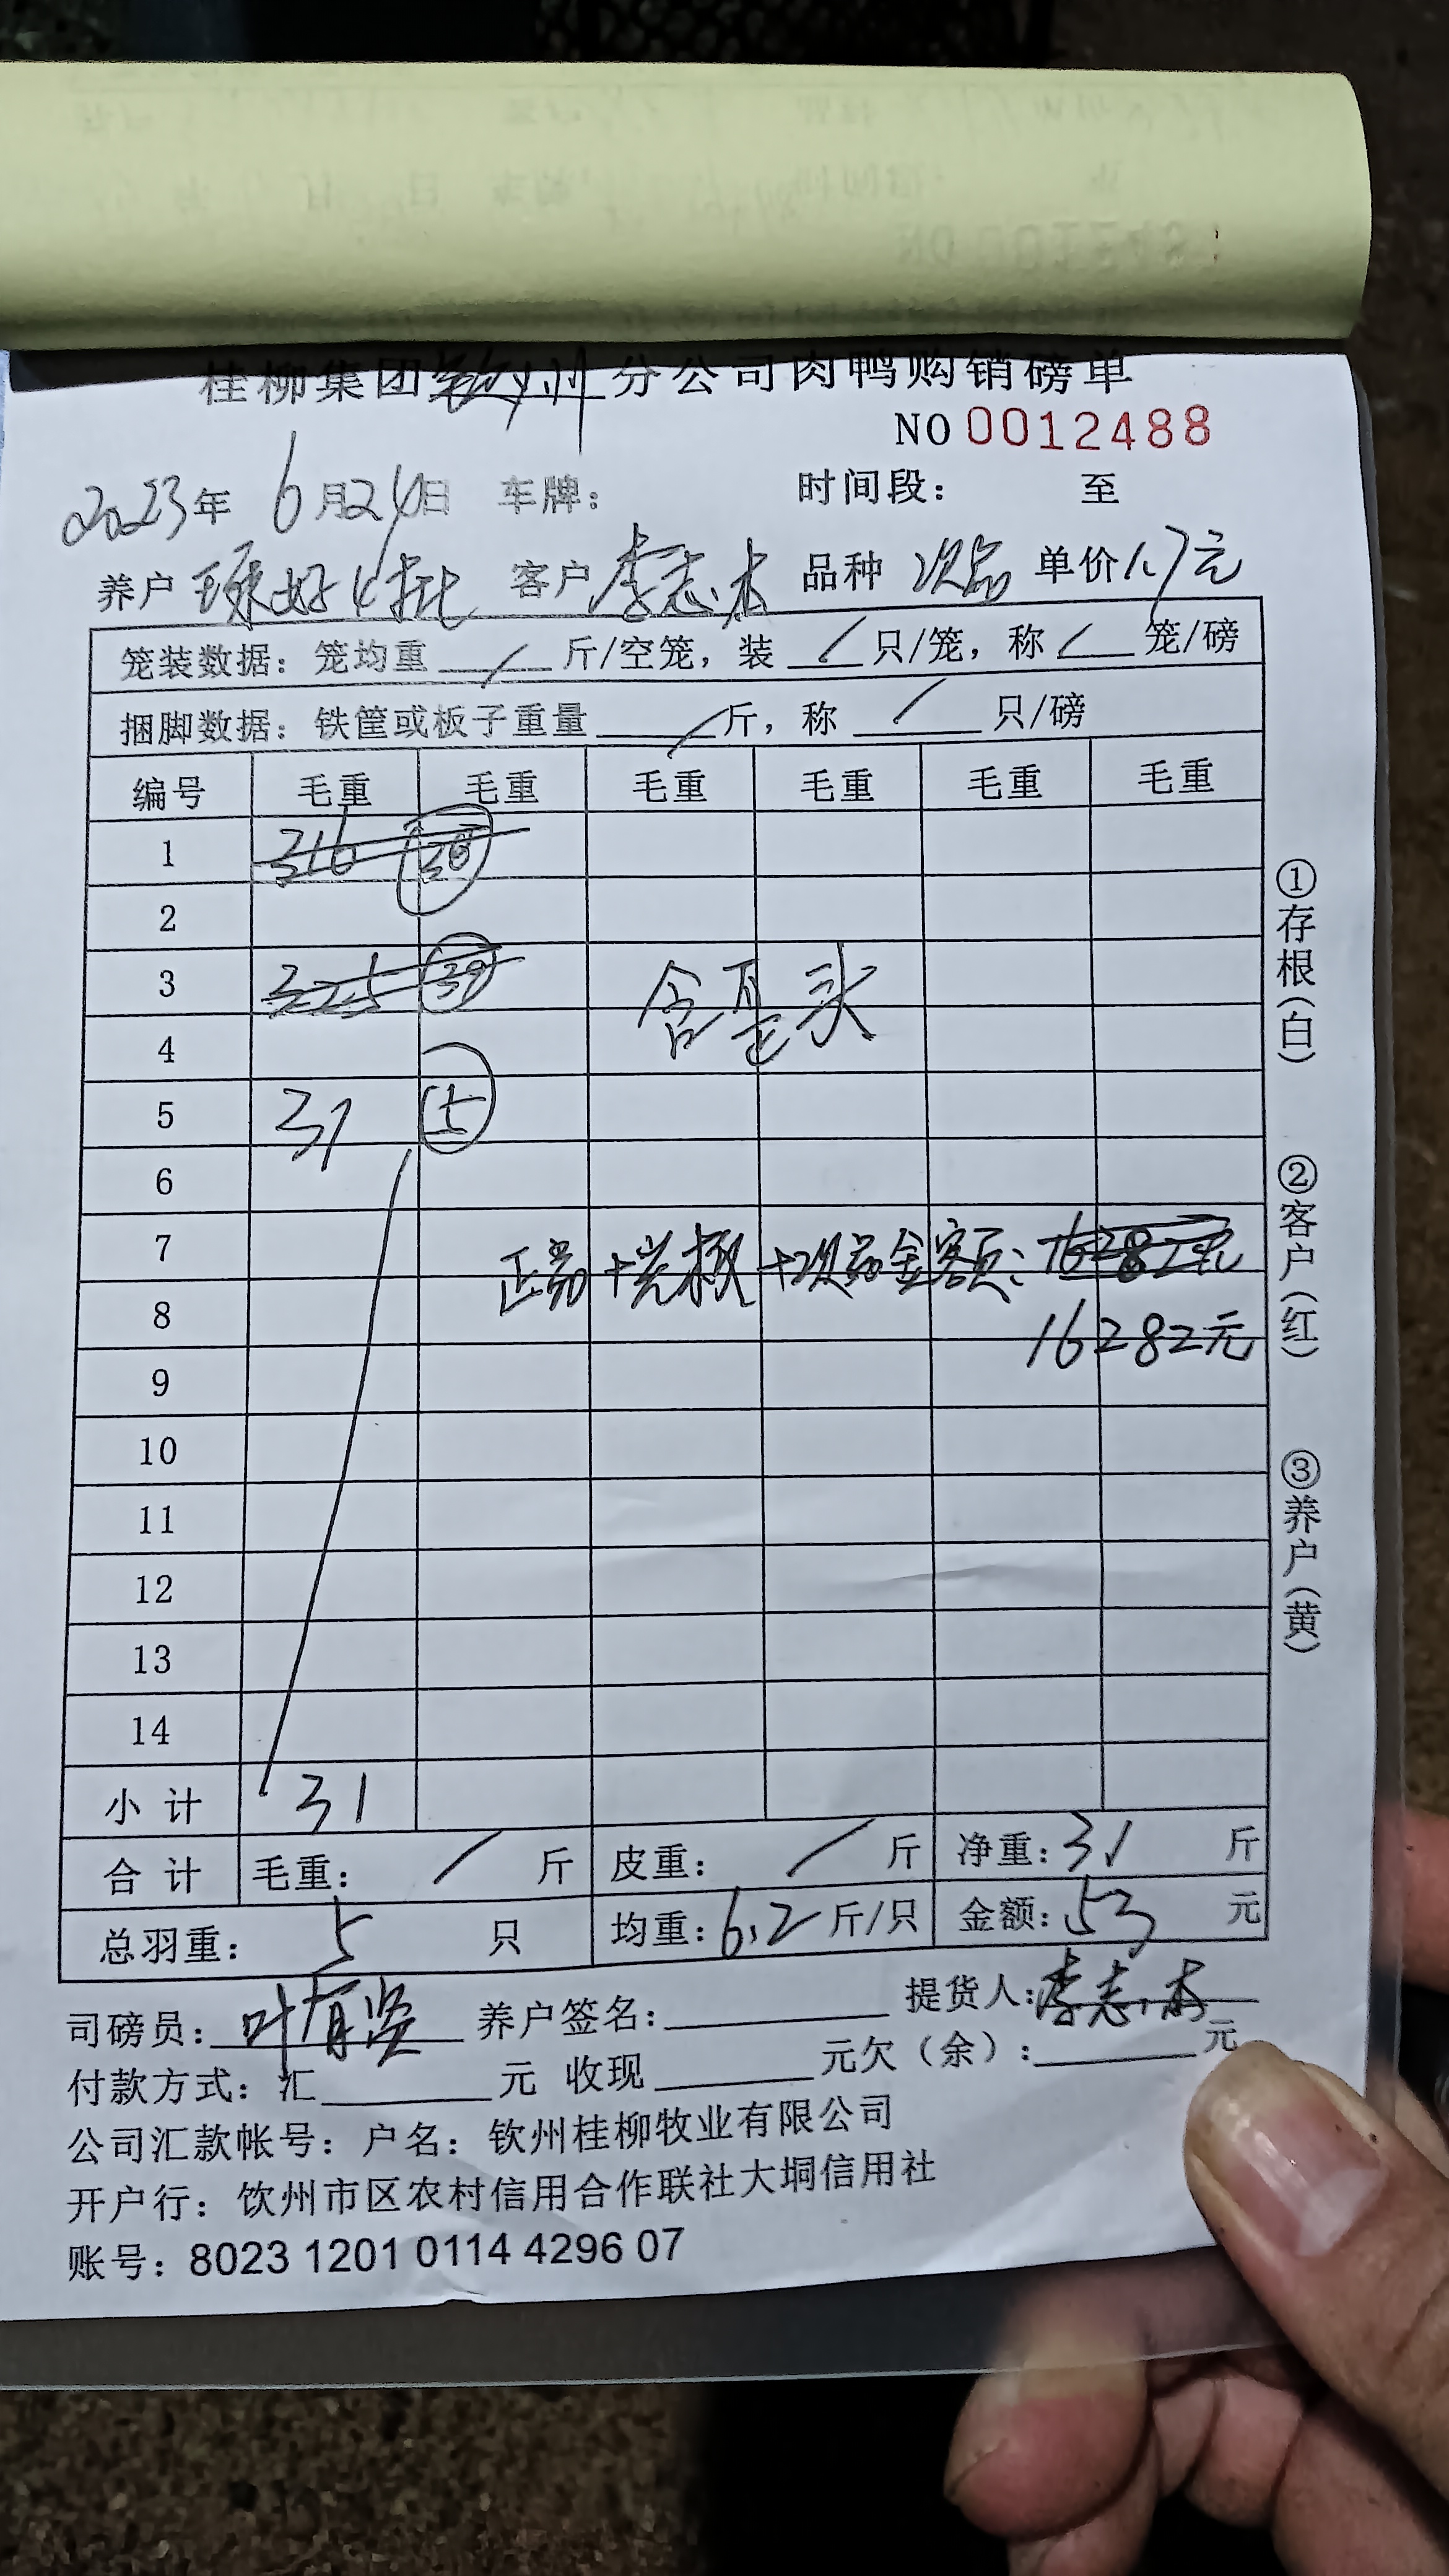 桂柳集团钦州分公司肉鸭购销磅单
NO 0012488
2023年 6月24日 车牌： 时间段： 至
养户 琼好4批 客户 李志杰 品种 次品 单价1.7元
笼装数据：笼均重 / 斤/空笼，装 / 只/笼，称 / 笼/磅
捆脚数据：铁筐或板子重量 / 斤，称 / 只/磅
编号 毛重 毛重 毛重 毛重 毛重 毛重
1 316
2
3 325
4
含歪头
5 31 5
6
7 正常+光板+次品金额：16282元
8 16282元
9
10
11
12
13
14
小计 31
合计 毛重： / 斤 皮重： / 斤 净重：31 斤
总羽重： 5 只 均重：6.2斤/只 金额：53 元
司磅员： 养户签名： 提货人：李志杰
付款方式：汇 元 收现 元欠（余）： 元
公司汇款帐号：户名：钦州桂柳牧业有限公司
开户行：饮州市区农村信用合作联社大垌信用社
账号：8023 1201 0114 4296 07
①存根（白）
②客户（红）
③养户（黄）